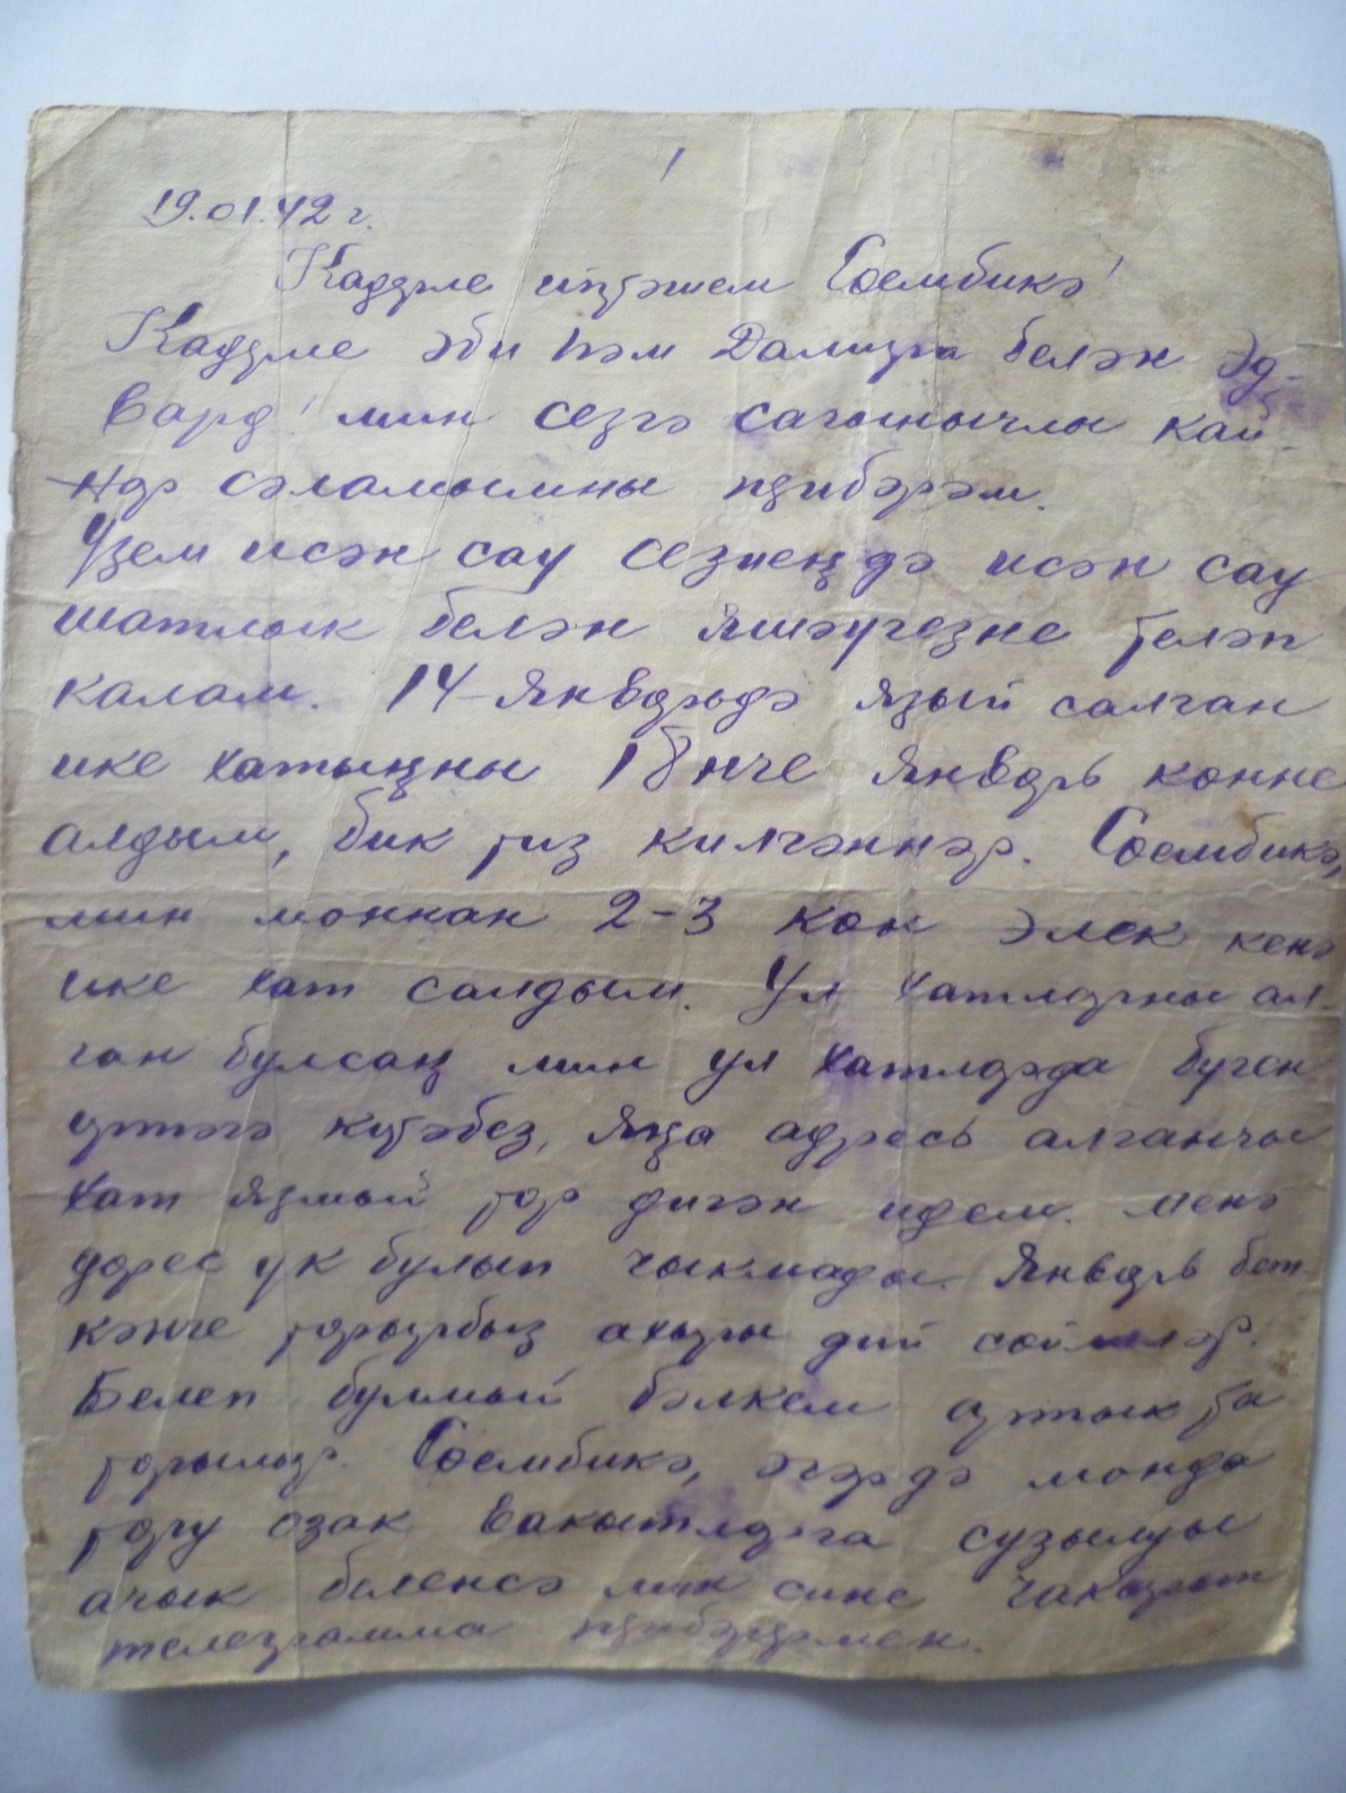 1
19.01.42 г.
Кадерле иптәшем Сөембикә!
Кадерле әби һәм Дамира белән Эд-
вард! мин сезгә сагынычлы кай-
нар сәламымны җибәрәм.
Үзем исән сау сезнеңдә исән сау
шатлык белән яшәүгезне теләп
калам. 14-январьдә язып салган
ике хатыңны 18нче январь көнне
алдым, бик тиз килгәннәр. Сөембикә,
мин моннан 2-3 көн элек кенә
ике хат салдым. Ул хатларны ал-
ган булсаң мин ул хатларда бүген
иртәгә китәбез, яңа адресь алганчы
хат язмый тор дигән идем. менә
дөрес үк булып чыкмады. Январь бет-
кәнче торырбыз ахыры дип сөйлиләр.
Белеп булмый бәлкем артык та
торылыр. Сөембикә, әгәрдә монда
тору озак вакытларга сузылуы
ачык беленсә мин сине чакырып
телеграмма җибәрермен.